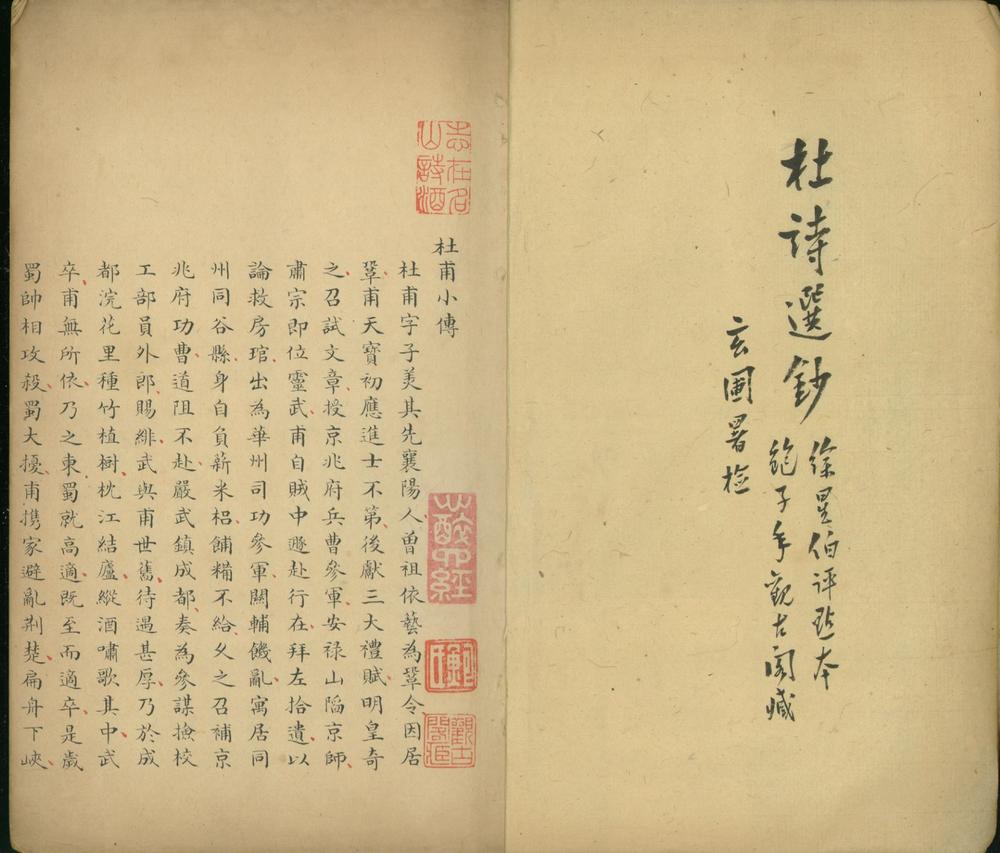 杜詩選鈔
徐星伯評點本
鮑子年觀古閣臧
玄圃署檢
志在名山詩酒
杜甫小傳
杜甫字子美其先襄陽人曾祖依藝為鞏令因居
鞏甫天寶初應進士不第後獻三大禮賦明皇奇
之召試文章授京兆府兵曹參軍安禄山陷京師
肅宗即位靈武甫自賊中遯赴行在拜左拾遺以
論救房琯出為華州司功參軍關輔饑亂寓居同
州同谷縣身自負薪米梠餔糒不給久之召補京
兆府功曹道阻不赴嚴武鎮成都奏為參謀撿校
工部員外郎賜緋武與甫世舊待遇甚厚乃於成
都浣花里種竹植樹枕江結廬縱酒嘯歌其中武
卒甫無所依乃之東蜀就高適既至而適卒是歲
蜀帥相攻殺蜀大擾甫携家避亂荆楚扁舟下峽
鮑氏
觀古閣臧